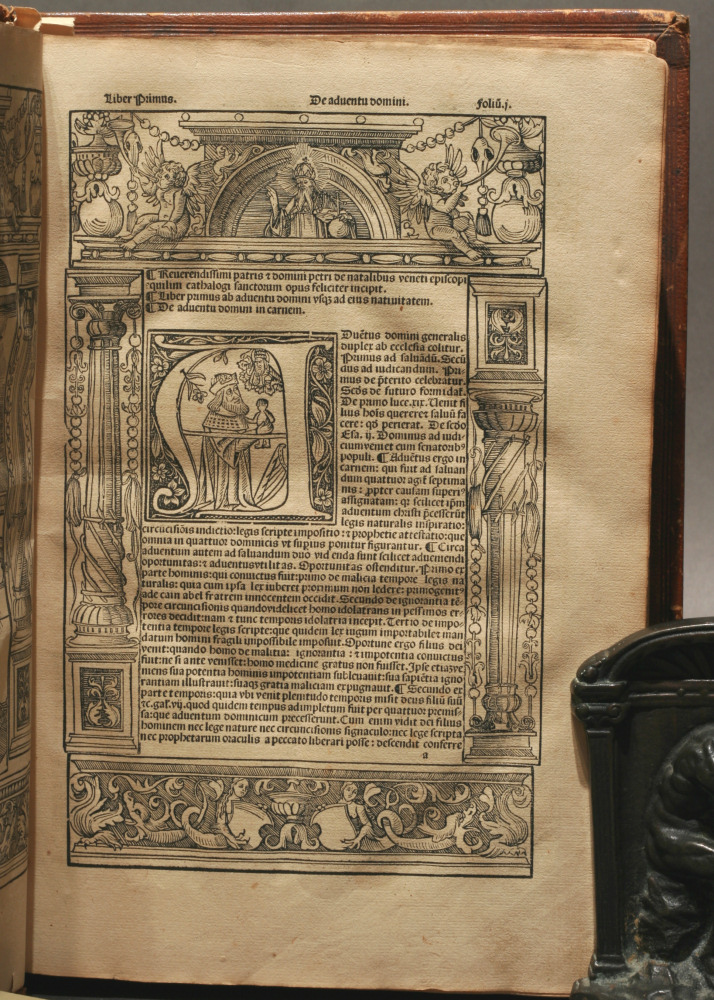 Liber Primus. De aduentu domini. foliū.j.
¶ Reuerendissimi patris ⁊ domini petri de natalibus veneti episcopi
equilini cathalogi sanctorum opus feliciter incipit.
¶ Liber primus ab aduentu domini vsq̄ ad eius natiuitatem.
¶ De aduentu domini in carnem.
Duētus domini generalis
duplex ab ecclesia colitur.
Primus ad saluādū. Secū
dus ad iudicandum. Pri-
mus de p̄terito celebratur.
Scōs de futuro formidaṫ.
De primo luce.xix. Uenit fi
lius hoīs querere⁊ saluū fa
cere: qđ perierat. De scđo
Esa. ij. Dominus ad iudi-
cium veniet cum senatorib⁹
populi. ¶ Aduētus ergo in
carnem: qui fuit ad saluan
dum quattuor agiṫ septima
nis: ꝓpter causam superi⁹
assignatam: qꝛ scilicet ip̄m
aduentum christi p̄cesserūt
legis naturalis inspiratio:
circūcisiōis indictio: legis scripte impositio: ⁊ prophetie attestatio: que
omnia in quattuor dominicis vt supius ponitur figurantur. ¶ Circa
aduentum autem ad saluandum duo vid enda sunt scilicet aduemendi
oportunitas: ⁊ aduentus vtilitas. Oportunitas ostenditur. Primo ex
parte hominis: qui conuictus fuit: primo de malicia tempore legis na
turalis: quia cum ipsa lex iuberet proximum non ledere: primogenit⁹
ade cain abel fratrem innocentem occidit. Secundo de ignorantia tē-
pore circuncisionis quando videlicet homo idolatrans in pessimos er-
rores decidit: nam ⁊ tunc temporis idolatria incepit. Tertio de impo-
tentia tempore legis scripte: que quidem lex iugum importabile ⁊ man
datum homini fragili impossibile imposuit. Oportune ergo filius dei
venit: quando homo de malitia: ignorantia: ⁊ impotentia conuictus
fuit: ne si ante venisset: homo medicine gratus non fuisset. Ipse etiā sve
mens sua potentia hominis impotentiam subleuauit: sua sapiētia igno
rantiam illustrauit: suaq̄ gratia maliciam expugnauit. ¶ Secundo ex
parte temporis: quia vbi venit plenitudo temporis misit deus filiū suū
⁊c.gal.vij. quod quidem tempus adimpletum fuit per quattuor premis-
sa: que aduentum dominicum precesserunt. Cum enim vidit dei filius
hominem nec lege nature nec circuncisionis signaculo: nec lege scripta
nec prophetarum oraculis a peccato liberari posse: descendit conferre
a